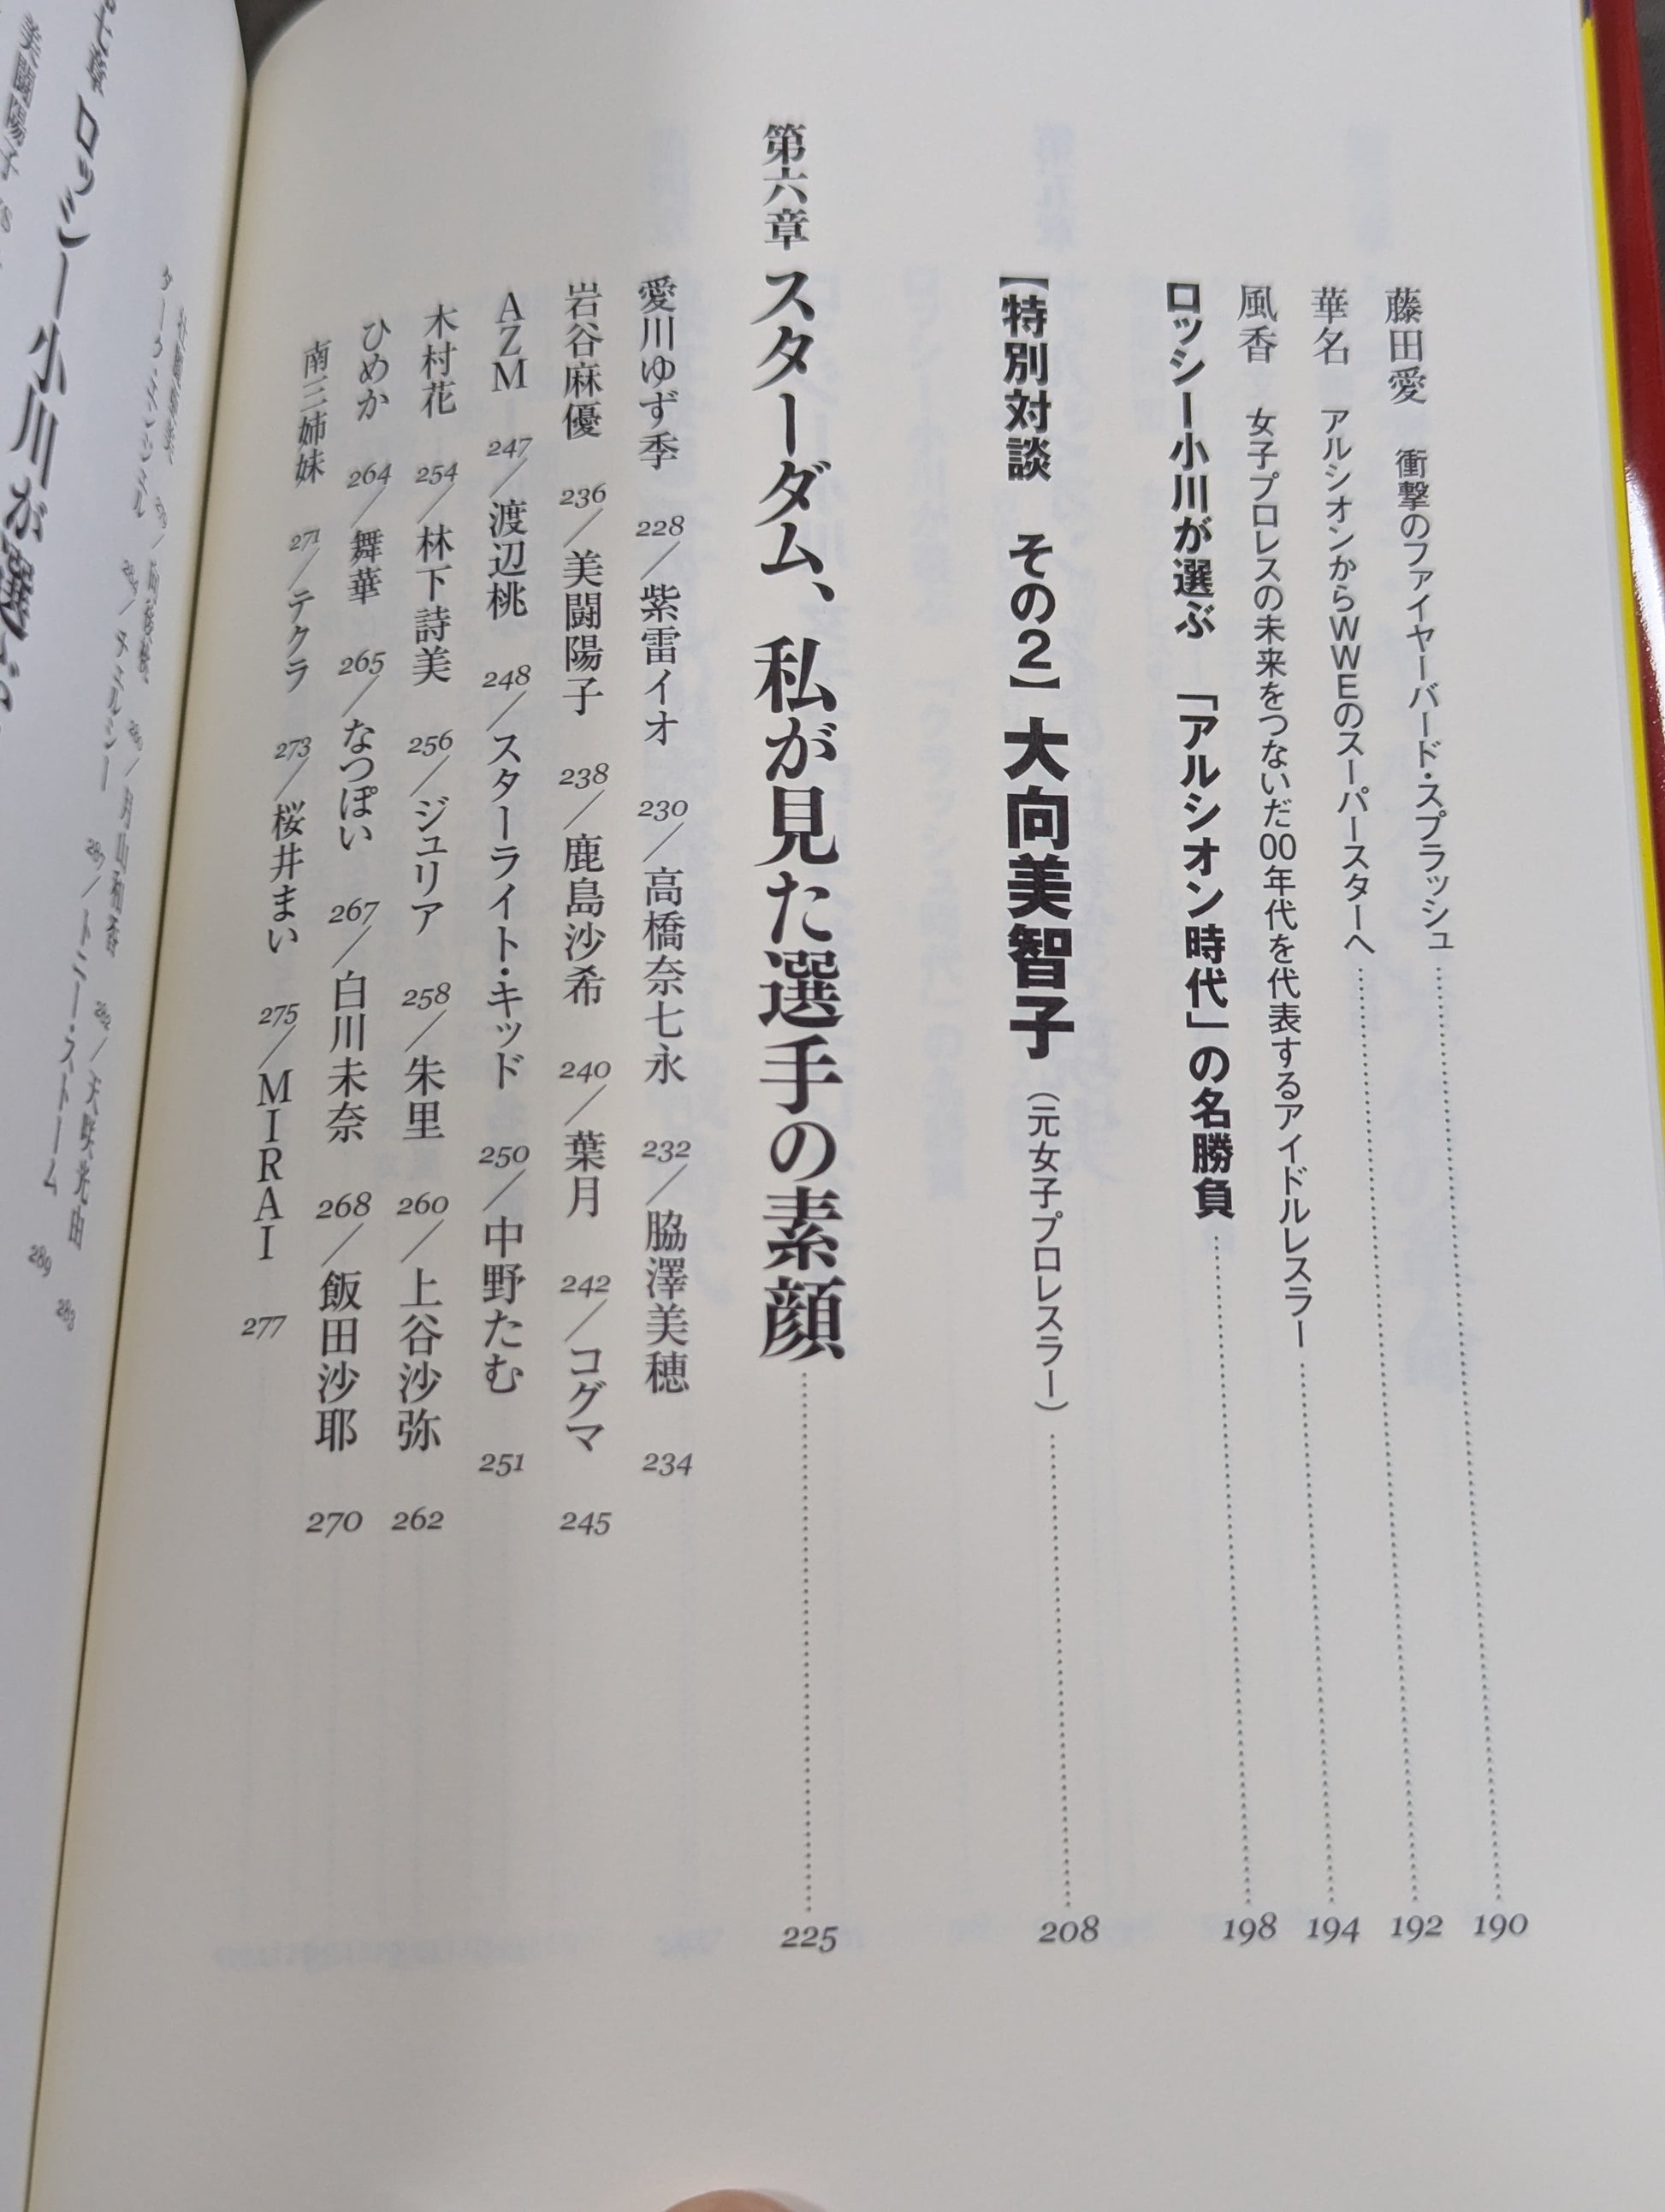 藤田愛　衝撃のファイヤーバード・スプラッシュ 190
華名　アルシオンからWWEのスーパースターへ 192
風香　女子プロレスの未来をつないだ00年代を代表するアイドルレスラー 194
ロッシー小川が選ぶ　「アルシオン時代」の名勝負 198
【特別対談　その2】大向美智子（元女子プロレスラー） 208
第六章 スターダム、私が見た選手の素顔 225
愛川ゆず季 228／紫雷イオ 230／高橋奈七永 232／脇澤美穂 234
岩谷麻優 236／美闘陽子 238／鹿島沙希 240／葉月 242／コグマ 245
AZM 247／渡辺桃 248／スターライト・キッド 250／中野たむ 251
木村花 254／林下詩美 256／ジュリア 258／朱里 260／上谷沙弥 262
ひめか 264／舞華 265／なつぽい 267／白川未奈 268／飯田沙耶 270
南三姉妹 271／テクラ 273／桜井まい 275／MIRAI 277
月山和香
トニー・ストーム 289
ロッシー小川が選ぶ
美闘陽子